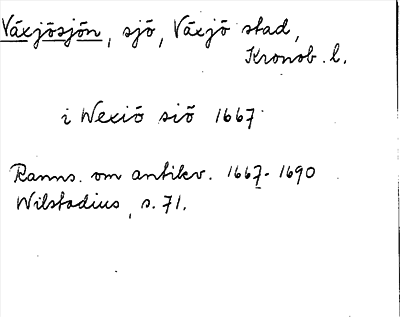 Växjösjön, sjö, Växjö stad,
Kronob. l.
i Wexiö siö 1667
Ranns. om antikv. 1667-1690
Wilstadius, s. 71.